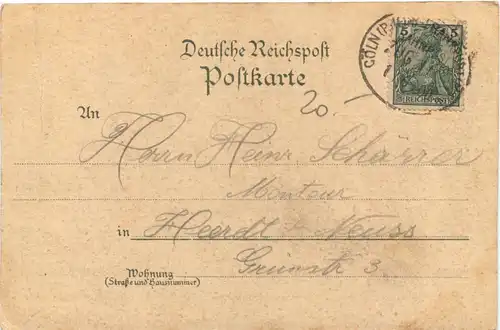 Deutsche Reichspost
Postkarte
CÖLN
5
5
REICHSPOST
20.-
An
Herrn Heinr. Schärrer
Monteur
in Heerdt b Neuss
Grünstr 3
Wohnung
(Straße und Hausnummer)